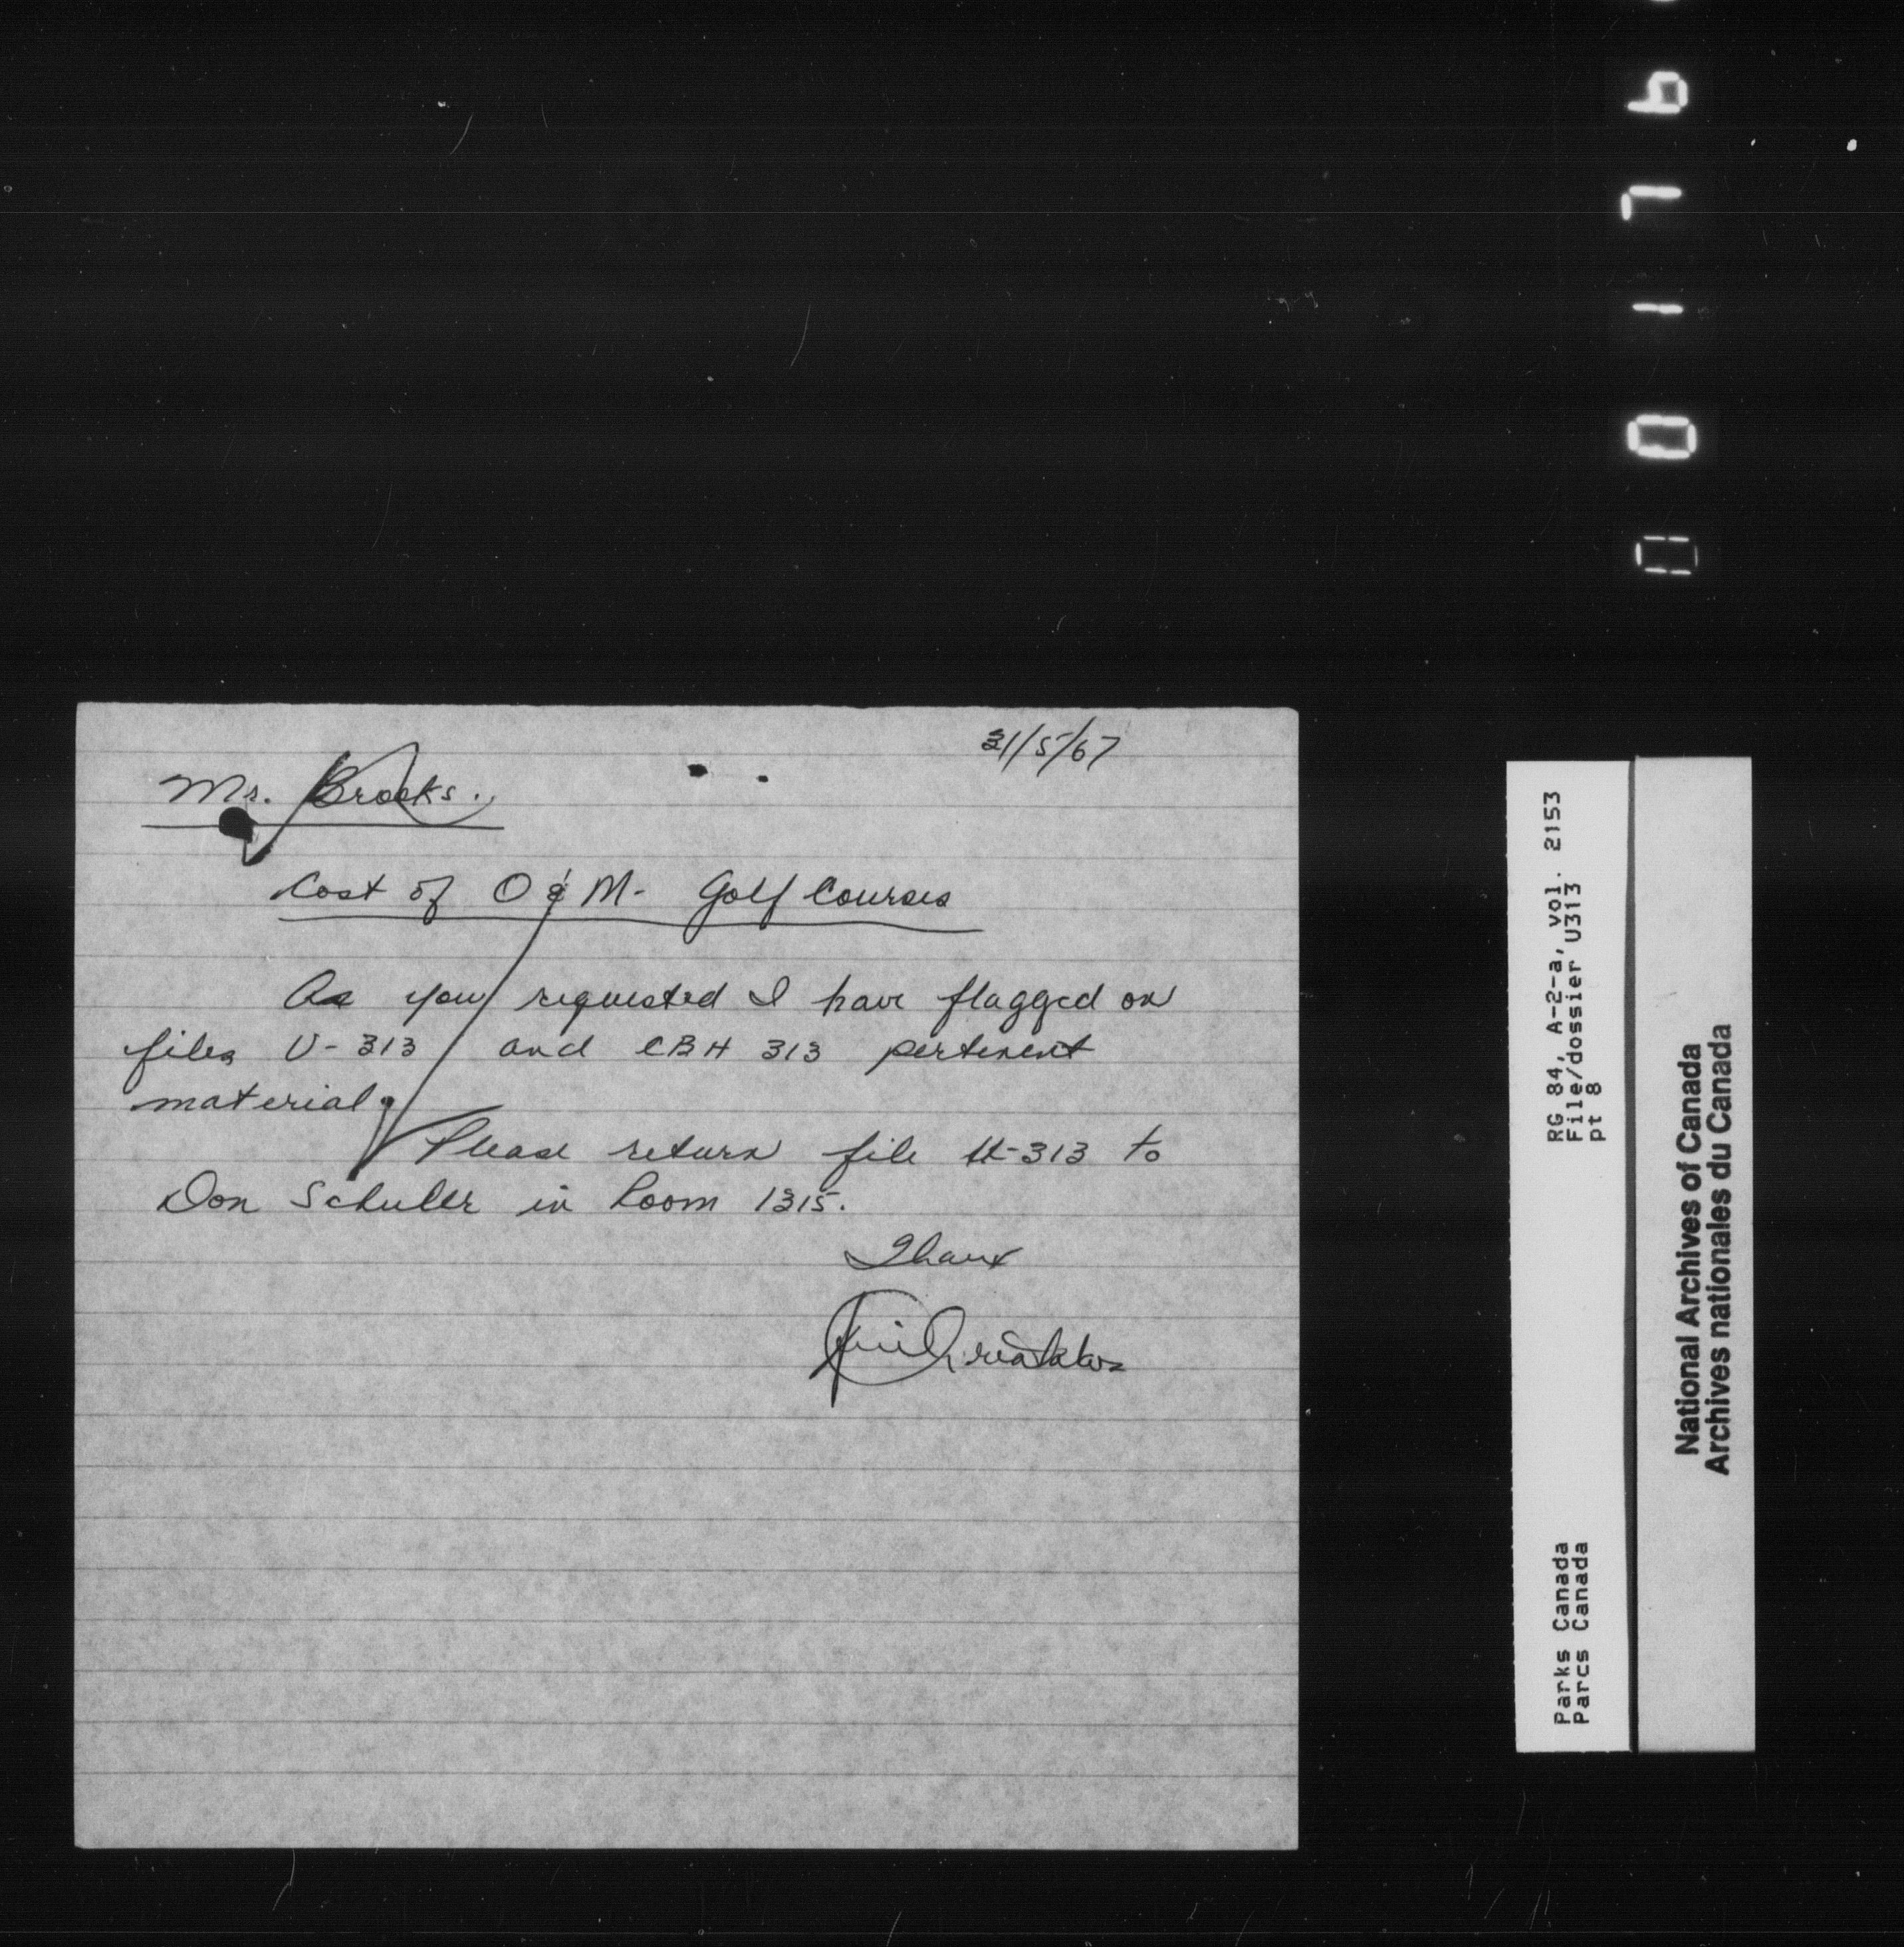 31/5/67
Mr. Brooks.
Cost of O & M - Golf Courses
As you requested I have flagged on
files U-313 and CBH 313 pertinent
material.
Please return file U-313 to
Don Schuler in Room 1315.
Thanx
RG 84, A-2-a, vol. 2153
File/dossier U313
pt 8
Parks Canada
Parcs Canada
National Archives of Canada
Archives nationales du Canada